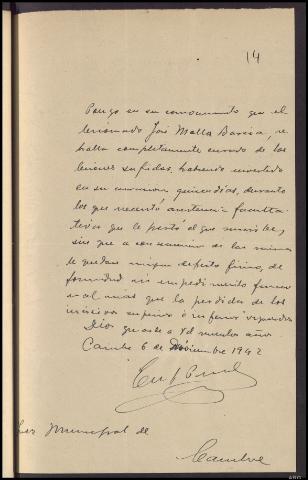 14
Pongo en su conocimiento que el
lesionado José Malla Barcia, se
halla completamente curado de las
lesiones sufridas, habiendo invertido
en su curacion quince dias, durante
los que necesitó asistencia faculta-
tiva que le prestó el que suscribe,
sin que a consecuencia de las mismas
le quedara ningun defecto fisico, de
formidad ni impedimento
que la perdida de los
incisivos superior é inferior izquierdos
Dios guarde a Vd muchos años
Cambre 6 de Diciembre 1942
Juez Municipal de
Cambre